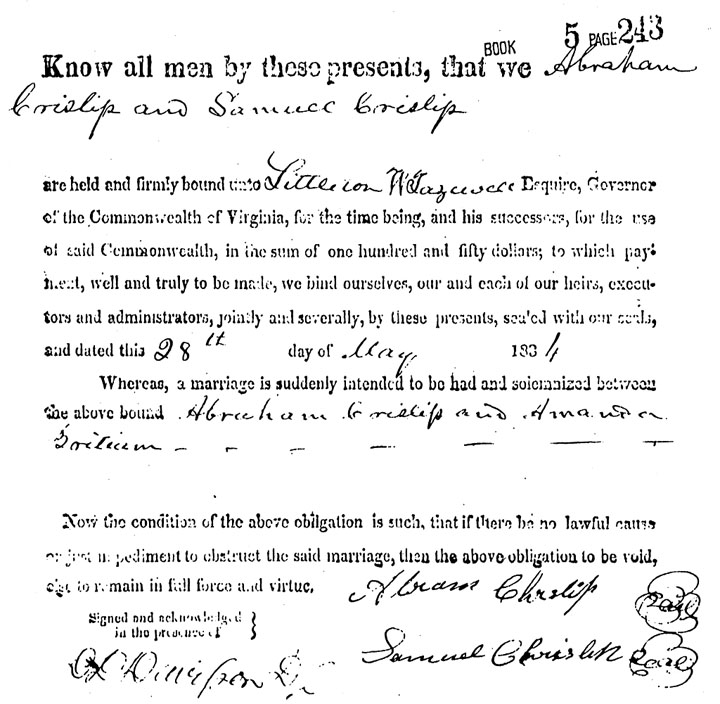 BOOK 5 PAGE 243
Know all men by these presents, that we Abraham
Crislip and Samuel Crislip
are held and firmly bound unto Littleton W Tazewell Esquire, Governor
of the Commonwealth of Virginia, for the time being, and his successors, for the use
of said Commonwealth, in the sum of one hundred and fifty dollars; to which pay-
ment, well and truly to be made, we bind ourselves, our and each of our heirs, execu-
tors and administrators, jointly and severally, by these presents, sealed with our seals,
and dated this 28th day of May 1834
Whereas, a marriage is suddenly intended to be had and solemnized between
the above bound Abraham Crislip and Amanda
Now the condition of the above obligation is such, that if there be no lawful cause
or just impediment to obstruct the said marriage, then the above obligation to be void,
else to remain in full force and virtue.
Abram Chrslip Seal
Signed and acknowledged
in the presence of
Samuel Chrislip Seal
Davisson